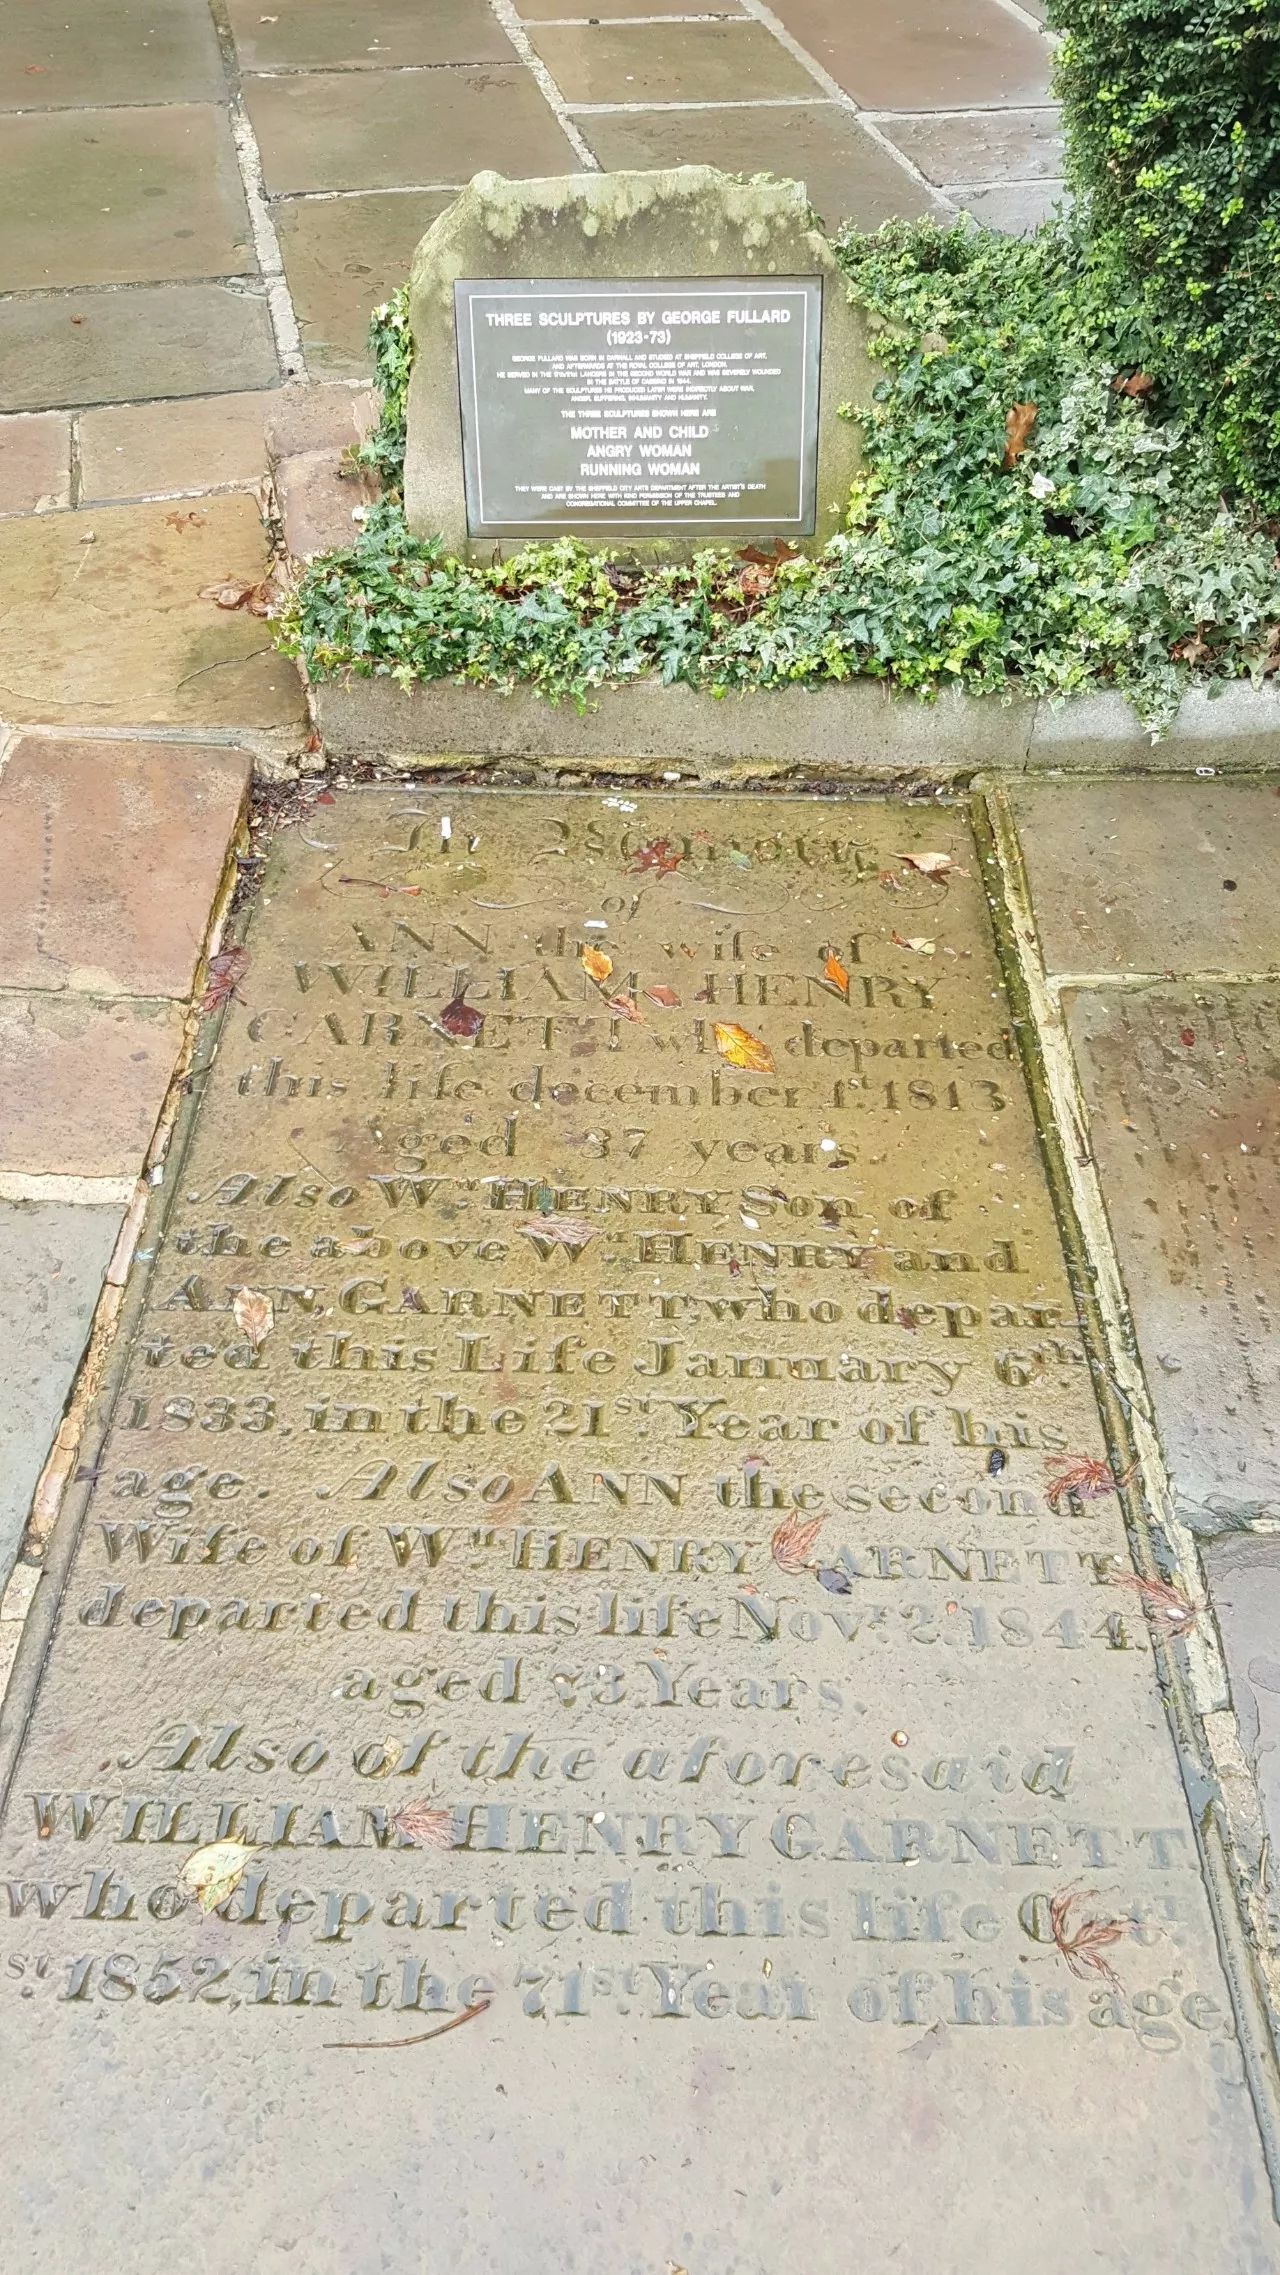 THREE SCULPTURES BY GEORGE FULLARD
(1923-73)
GEORGE FULLARD WAS BORN IN DARNALL AND STUDIED AT SHEFFIELD COLLEGE OF ART,
AND AFTERWARDS AT THE ROYAL COLLEGE OF ART, LONDON.
HE SERVED IN THE 17th/21st LANCERS IN THE SECOND WORLD WAR AND WAS SEVERELY WOUNDED
IN THE BATTLE OF CASSINO IN 1944.
MANY OF THE SCULPTURES HE PRODUCED LATER WERE INDIRECTLY ABOUT WAR,
ANGER, SUFFERING, INHUMANITY AND HUMANITY.
THE THREE SCULPTURES SHOWN HERE ARE
MOTHER AND CHILD
ANGRY WOMAN
RUNNING WOMAN
THEY WERE CAST BY THE SHEFFIELD CITY ARTS DEPARTMENT AFTER THE ARTIST'S DEATH
AND ARE SHOWN HERE WITH KIND PERMISSION OF THE TRUSTEES AND
CONGREGATIONAL COMMITTEE OF THE UPPER CHAPEL.
In Memory
of
ANN the wife of
WILLIAM HENRY
GARNETT who departed
this life december 1st. 1813
aged 37 years.
Also Wm. HENRY Son of
the above Wm. HENRY and
ANN, GARNETT, who depar-
ted this Life January 6th.
1833, in the 21st. Year of his
age. Also ANN the second
Wife of Wm. HENRY GARNETT
departed this life Novr. 2. 1844.
aged 73 Years.
Also of the aforesaid
WILLIAM HENRY GARNETT
who departed this life Octr.
st. 1852, in the 71st. Year of his age,